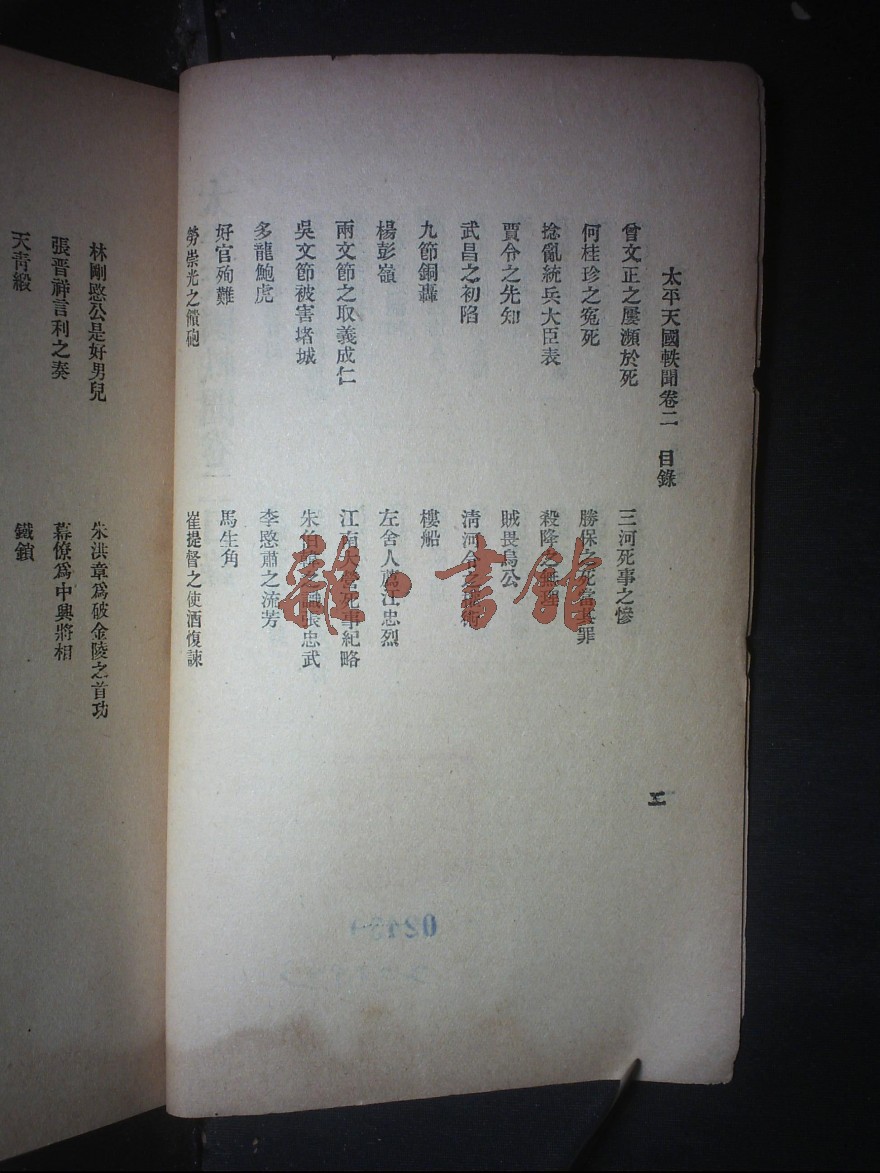 太平天國軼聞卷二　目錄
曾文正之屢瀕於死　三河死事之慘
何桂珍之冤死　勝保之死當其罪
捻亂統兵大臣表　殺降之無理
賈令之先知　賊畏烏公
武昌之初陷　清河令之
九節銅轟　樓船
楊彭嶺　左舍人薦江忠烈
兩文節之取義成仁　江南大營死事紀略
吳文節被害堵城　朱伯韓之識張忠武
多龍鮑虎　李愍肅之流芳
好官殉難　馬生角
勞崇光之償砲　崔提督之使酒愎諫
林剛愍公是好男兒　朱洪章爲破金陵之首功
張晋祥言利之奏　幕僚爲中興將相
天青緞　鐵鎖
雜·書館